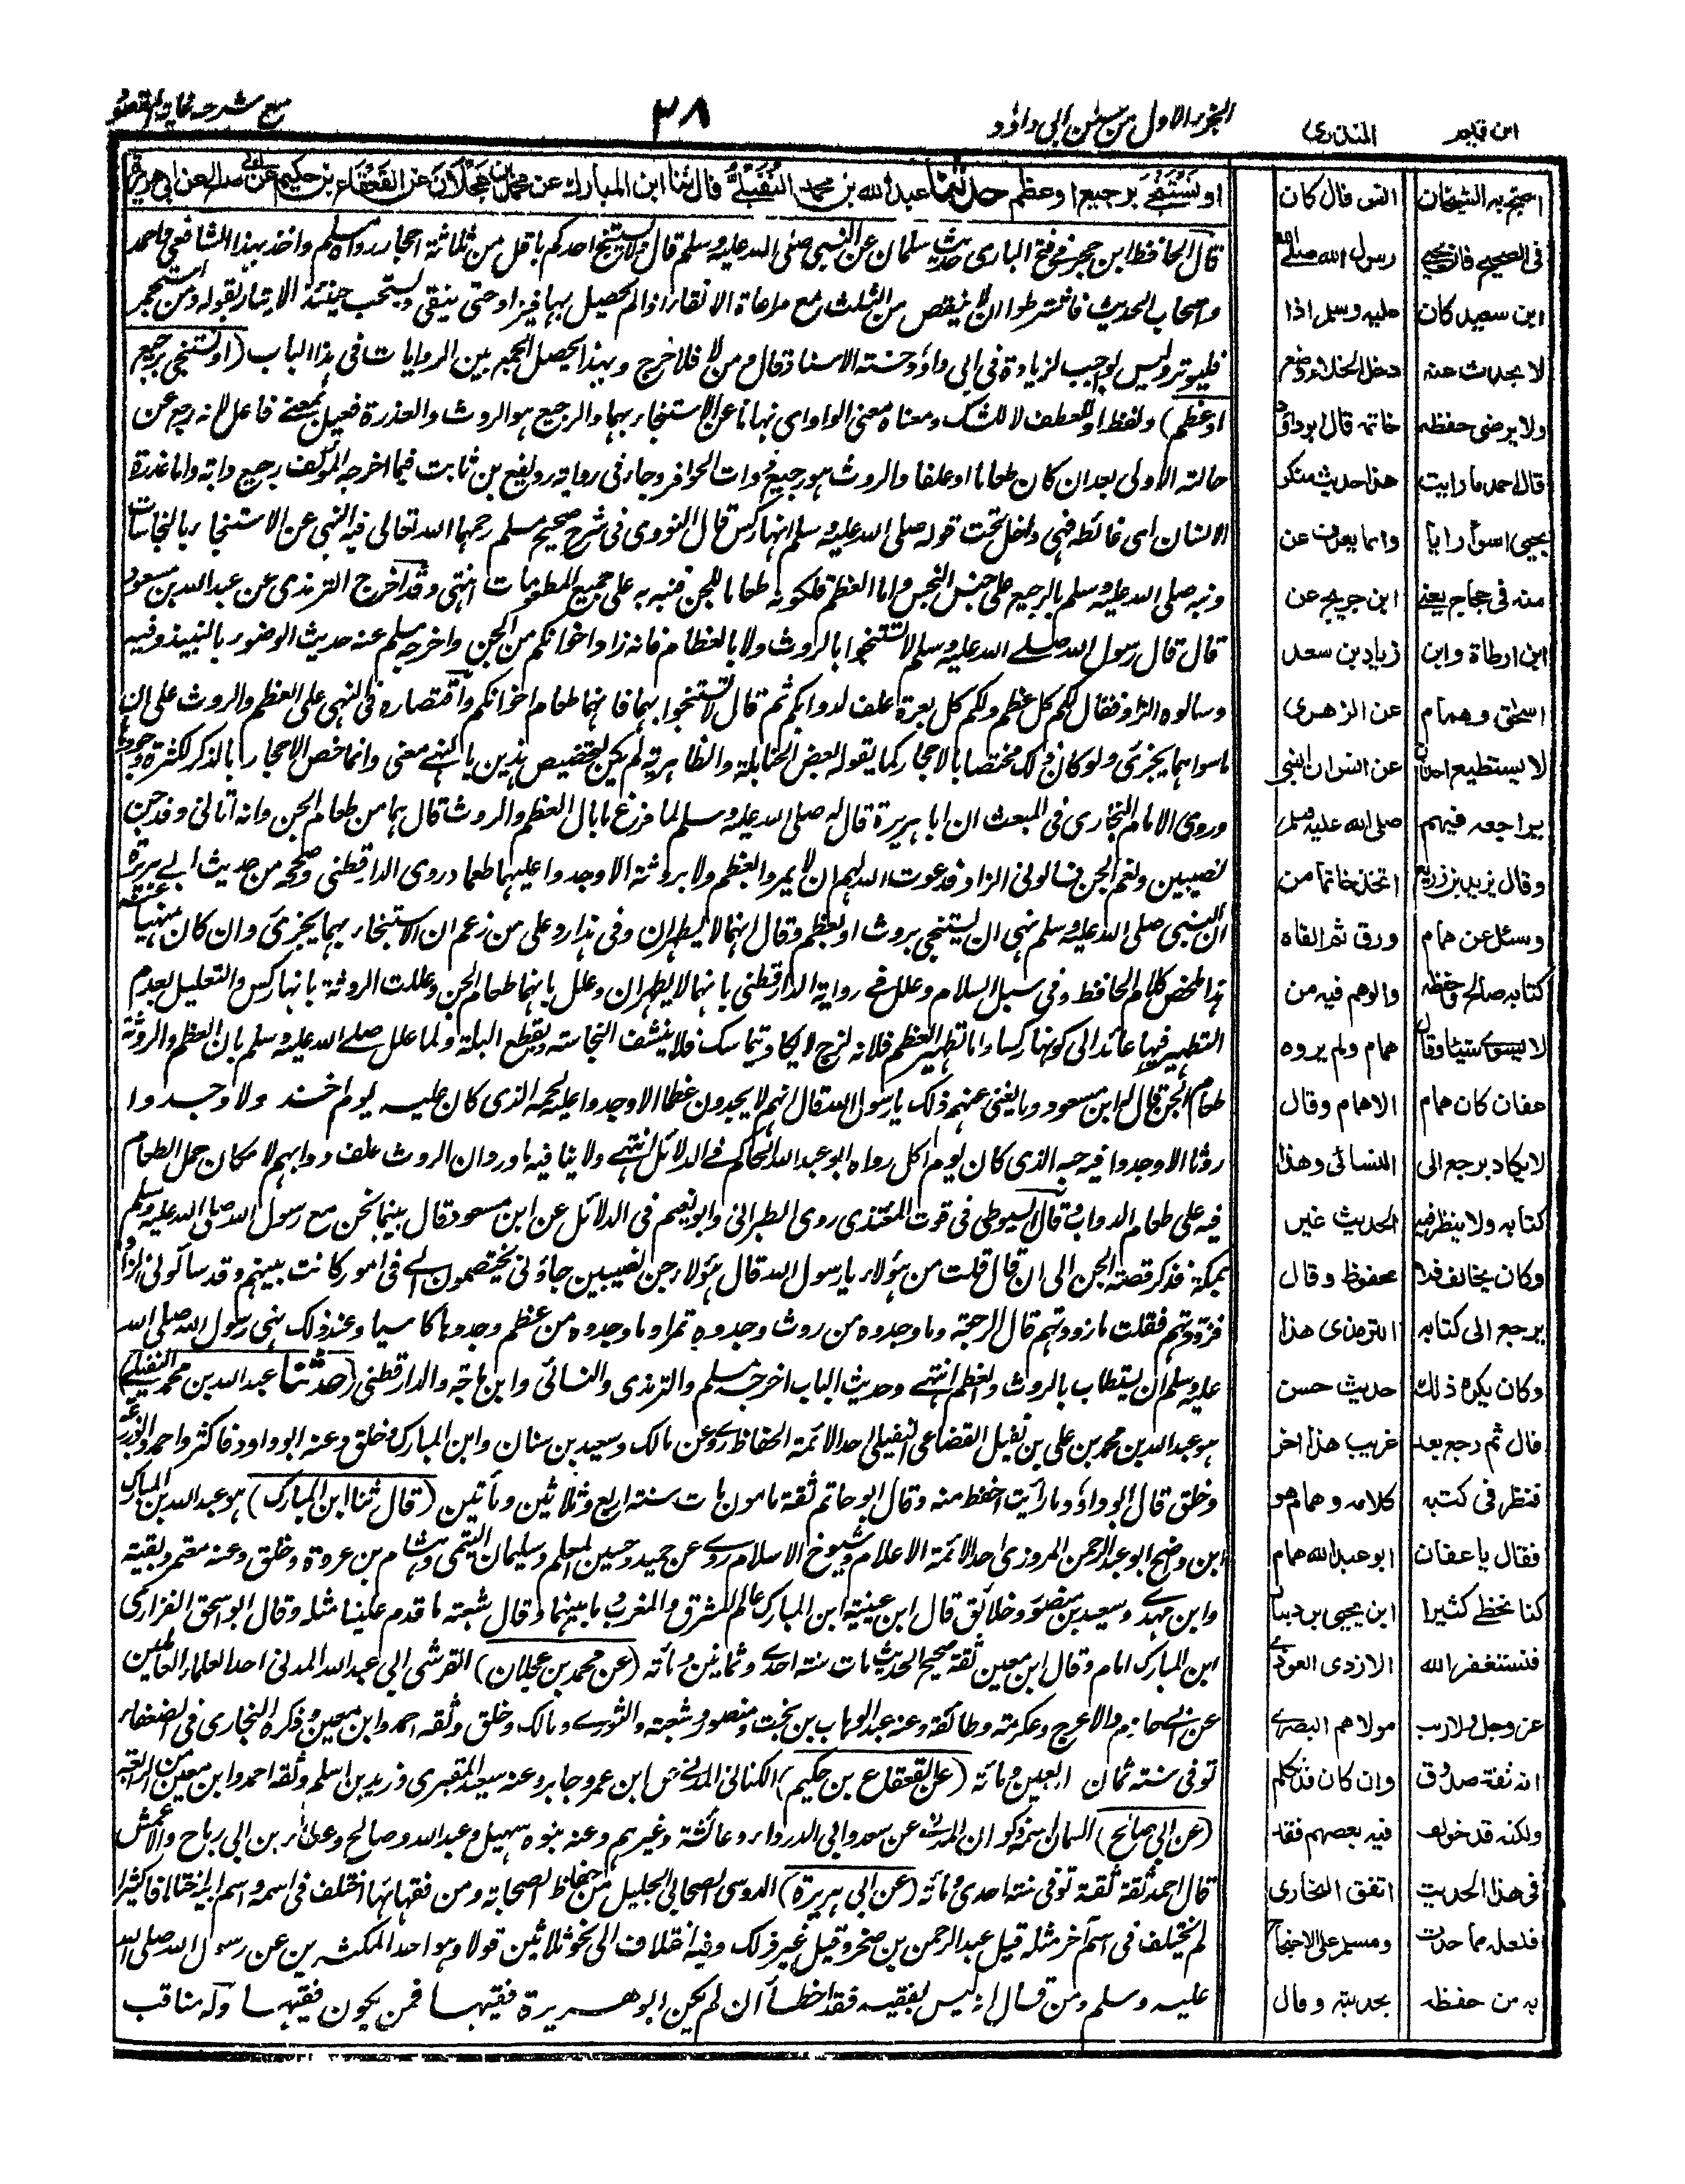 ابن قيم
المنذري
الجزء الاول من سنن ابی داؤد
٣٨
مع شرحه غاية المقصود
او يستنجي برجيع او عظم حدثنا عبد الله بن محمد النفيلي قال ثنا ابن المبارك عن محمد بن عجلان عن القعقاع بن حكيم عن ابي صالح عن ابي هريرة
قال الحافظ ابن حجر في فتح الباري حديث سلمان عن النبي صلى الله عليه وسلم قال ولا يستنج احدكم باقل من ثلاثة احجار رواه مسلم واخذ بهذا الشافعي واحمد
واصحاب الحديث فاشترطوا ان لا ينقص من الثلث مع مراعاة الانقاء اذا لم يحصل بها فيزاد حتى ينقي ويستحب حينئذ الايتار بقوله ومن استجمر
فليوتر وليس بواجب لزيادة في ابي داود حسنة الاسناد قال ومن لا فلا حرج وبهذا يحصل الجمع بين الروايات في هذا الباب (او يستنجي برجيع
او عظم) ولفظ او للعطف لا للشك ومعناه معنى الواو اي نهانا عن الاستنجاء بهما والرجيع هو الروث والعذرة فعيل بمعنى فاعل لانه رجع عن
حالته الاولى بعد ان كان طعاما او علفا والروث هو رجيع ذوات الحوافر وجاء في رواية رويفع بن ثابت فيما اخرجه المؤلف رجيع دابة واما عذرة
الانسان اي غائطه فهي داخل تحت قوله صلى الله عليه وسلم انها ركس قال النووي في شرح صحيح مسلم رحمهما الله تعالى فيه النهي عن الاستنجاء بالنجاسات
ونبه صلى الله عليه وسلم بالرجيع على جنس النجس واما العظم فلكونه طعاما للجن فنبه به على جميع المطعومات انتهى وقد اخرج الترمذي عن عبد الله بن مسعود
قال قال رسول الله صلى الله عليه وسلم لا تستنجوا بالروث ولا بالعظام فانه زاد اخوانكم من الجن واخرج مسلم عنه حديث الوضوء بالنبيذ وفيه
وسالوه الزاد فقال لكم كل عظم ولكم كل بعرة علف لدوابكم ثم قال لا تستنجوا بهما فانهما طعام اخوانكم واقتصاره في النهي على العظم والروث على ان
ما سواهما يجزئ ولو كان ذلك مختصا بالاحجار كما يقوله بعض الحنابلة والظاهرية لم يكن لتخصيص هذين بالنهي معنى وانما خص الاحجار بالذكر لكثرة وجودها
وروى الامام البخاري في المبعث ان ابا هريرة قال له صلى الله عليه وسلم لما فرغ ما بال العظم والروث قال هما من طعام الجن وانه اتاني وفد جن
نصيبين ونعم الجن فسالوني الزاد فدعوت الله لهم ان لا يمروا بعظم ولا بروثة الا وجدوا عليهما طعما وروى الدارقطني وصححه من حديث ابي هريرة
ان النبي صلى الله عليه وسلم نهى ان يستنجي بروث او بعظم وقال انهما لا يطهران وفي هذا رد على من زعم ان الاستنجاء بهما يجزئ وان كان منهيا عنه
هذا ملخص كلام الحافظ وفي سبل السلام وعلل في رواية الدارقطني بانهما لا يطهران وعلل بانهما طعام الجن وعللت الروثة بانها ركس والتعليل بعدم
التطهير فيها عائد الى كونها ركسا واما تطهير العظم فلانه لزج لا يكاد يتماسك فلا ينشف النجاسة ويقطع البلة ولما علل صلى الله عليه وسلم بان العظم والروثة
طعام الجن قال له ابن مسعود وما يغني عنهم ذلك يا رسول الله قال انهم لا يجدون عظما الا وجدوا عليه لحمه الذي كان عليه يوم اخذ ولا وجدوا
روثا الا وجدوا فيه حبه الذي كان يوم اكل رواه ابو عبد الله الحاكم في الدلائل انتهى ولا ينافيه ما ورد ان الروث علف دوابهم لامكان حمل الطعام
فيه على طعام الدواب وقال السيوطي في قوت المغتذي روى الطبراني وابو نعيم في الدلائل عن ابن مسعود قال بينما نحن مع رسول الله صلى الله عليه وسلم
بمكة فذكر قصة الجن الى ان قال قلت من هؤلاء يا رسول الله قال هؤلاء جن نصيبين جاؤني يختصمون الي في امور كانت بينهم وقد سألوني الزاد
فزودتهم فقلت ما زودتهم قال الرجعة وما وجدوه من روث وجدوه تمرا وما وجدوه من عظم وجدوه كاسيا وعند ذلك نهى رسول الله صلى الله
عليه وسلم ان يستطاب بالروث والعظم انتهى وحديث الباب اخرجه مسلم والترمذي والنسائي وابن ماجة والدارقطني (حدثنا عبد الله بن محمد النفيلي)
هو عبد الله بن محمد بن علي بن نفيل القضاعي النفيلي احد الائمة الحفاظ روى عن مالك وسعيد بن سنان وابن المبارك وخلق وعنه ابو داود فاكثر واحمد والذهلي
وخلق قال ابو داود ما رأيت احفظ منه وقال ابو حاتم ثقة مامون مات سنة اربع وثلاثين ومأتين (قال ثنا ابن المبارك) هو عبد الله بن المبارك
ابن واضح ابو عبد الرحمن المروزي احد الائمة الاعلام وشيوخ الاسلام روى عن حميد وحسين المعلم وسليمان التيمي وهشام بن عروة وخلق وعنه معتمر وبقية
وابن مهدي وسعيد بن منصور وخلائق قال ابن عيينة ابن المبارك عالم المشرق والمغرب وما بينهما وقال شعبة ما قدم علينا مثله وقال ابو اسحق الفزاري
ابن المبارك امام وقال ابن معين ثقة صحيح الحديث مات سنة احدى وثمانين ومائة (عن محمد بن عجلان) القرشي ابي عبد الله المدني احد العلماء العاملين
عن ابي حازم والاعرج وعكرمة وطائفة وعنه عبد الوهاب بن بخت ومنصور وشعبة والثوري ومالك وخلق وثقه احمد وابن معين وذكره البخاري في الضعفاء
توفي سنة ثمان اربعين ومائة (عن القعقاع بن حكيم) الكناني المدني عن ابن عمر وجابر وعنه سعيد المقبري وزيد بن اسلم وثقه احمد وابن معين من الرابعة
(عن ابي صالح) السمان اسمه ذكوان المدني عن سعد وابي الدرداء وعائشة وغيرهم وعنه بنوه سهيل وعبد الله وصالح وعطاء بن ابي رباح والاعمش
قال احمد ثقة ثقة توفي سنة احدى ومائة (عن ابي هريرة) الدوسي الصحابي الجليل من حفاظ الصحابة ومن فقهائها اختلف في اسمه واسم ابيه اختلافا كثيرا
لم يختلف في اسم آخر مثله قيل عبد الرحمن بن صخر وقيل غير ذلك وفيه اختلاف الى نحو ثلاثين قولا وهو احد المكثرين عن رسول الله صلى الله
عليه وسلم ومن قال انه ليس بفقيه فقد اخطأ ان لم يكن ابو هريرة فقيها فمن يكون فقيها وله مناقب
انس قال كان
رسول الله صلى الله
عليه وسلم اذا
دخل الخلاء وضع
خاتمه قال ابو داود
هذا حديث منكر
وانما يعرف عن
ابن جريج عن
زياد بن سعد
عن الزهري
عن انس ان النبي
صلى الله عليه وسلم
اتخذ خاتما من
ورق ثم القاه
والوهم فيه من
همام ولم يروه
الا همام وقال
النسائي وهذا
الحديث غير
محفوظ وقال
الترمذي هذا
حديث حسن
غريب هذا اخر
كلامه وهمام هو
ابو عبد الله همام
ابن يحيى بن دينار
الازدي العوذي
مولاهم البصري
وان كان قد تكلم
فيه بعضهم فقد
اتفق البخاري
ومسلم على الاحتجاج
بحديثه وقال
احتج به الشيخان
في الصحيح فان يحيى
ابن سعيد كان
لا يحدث عنه
ولا يرضى حفظه
قال احمد ما رايت
يحيى اسوأ رايا
منه في حجاج يعني
ابن ارطاة وابن
اسحق وهمام
لا يستطيع احد ان
يراجعه فيهم
وقال يزيد بن زريع
وسئل عن همام
كتابه صالح وحفظه
لا يسوى شيئا وقال
عفان كان همام
لا يكاد يرجع الى
كتابه ولا ينظر فيه
وكان يخالف فلا
يرجع الى كتابه
وكان يكره ذلك
قال ثم رجع بعد
فنظر في كتبه
فقال يا عفان
كنا نخطئ كثيرا
فنستغفر الله
عز وجل ولا ريب
انه ثقة صدوق
ولكنه قد خولف
في هذا الحديث
فلعله مما حدث
به من حفظه